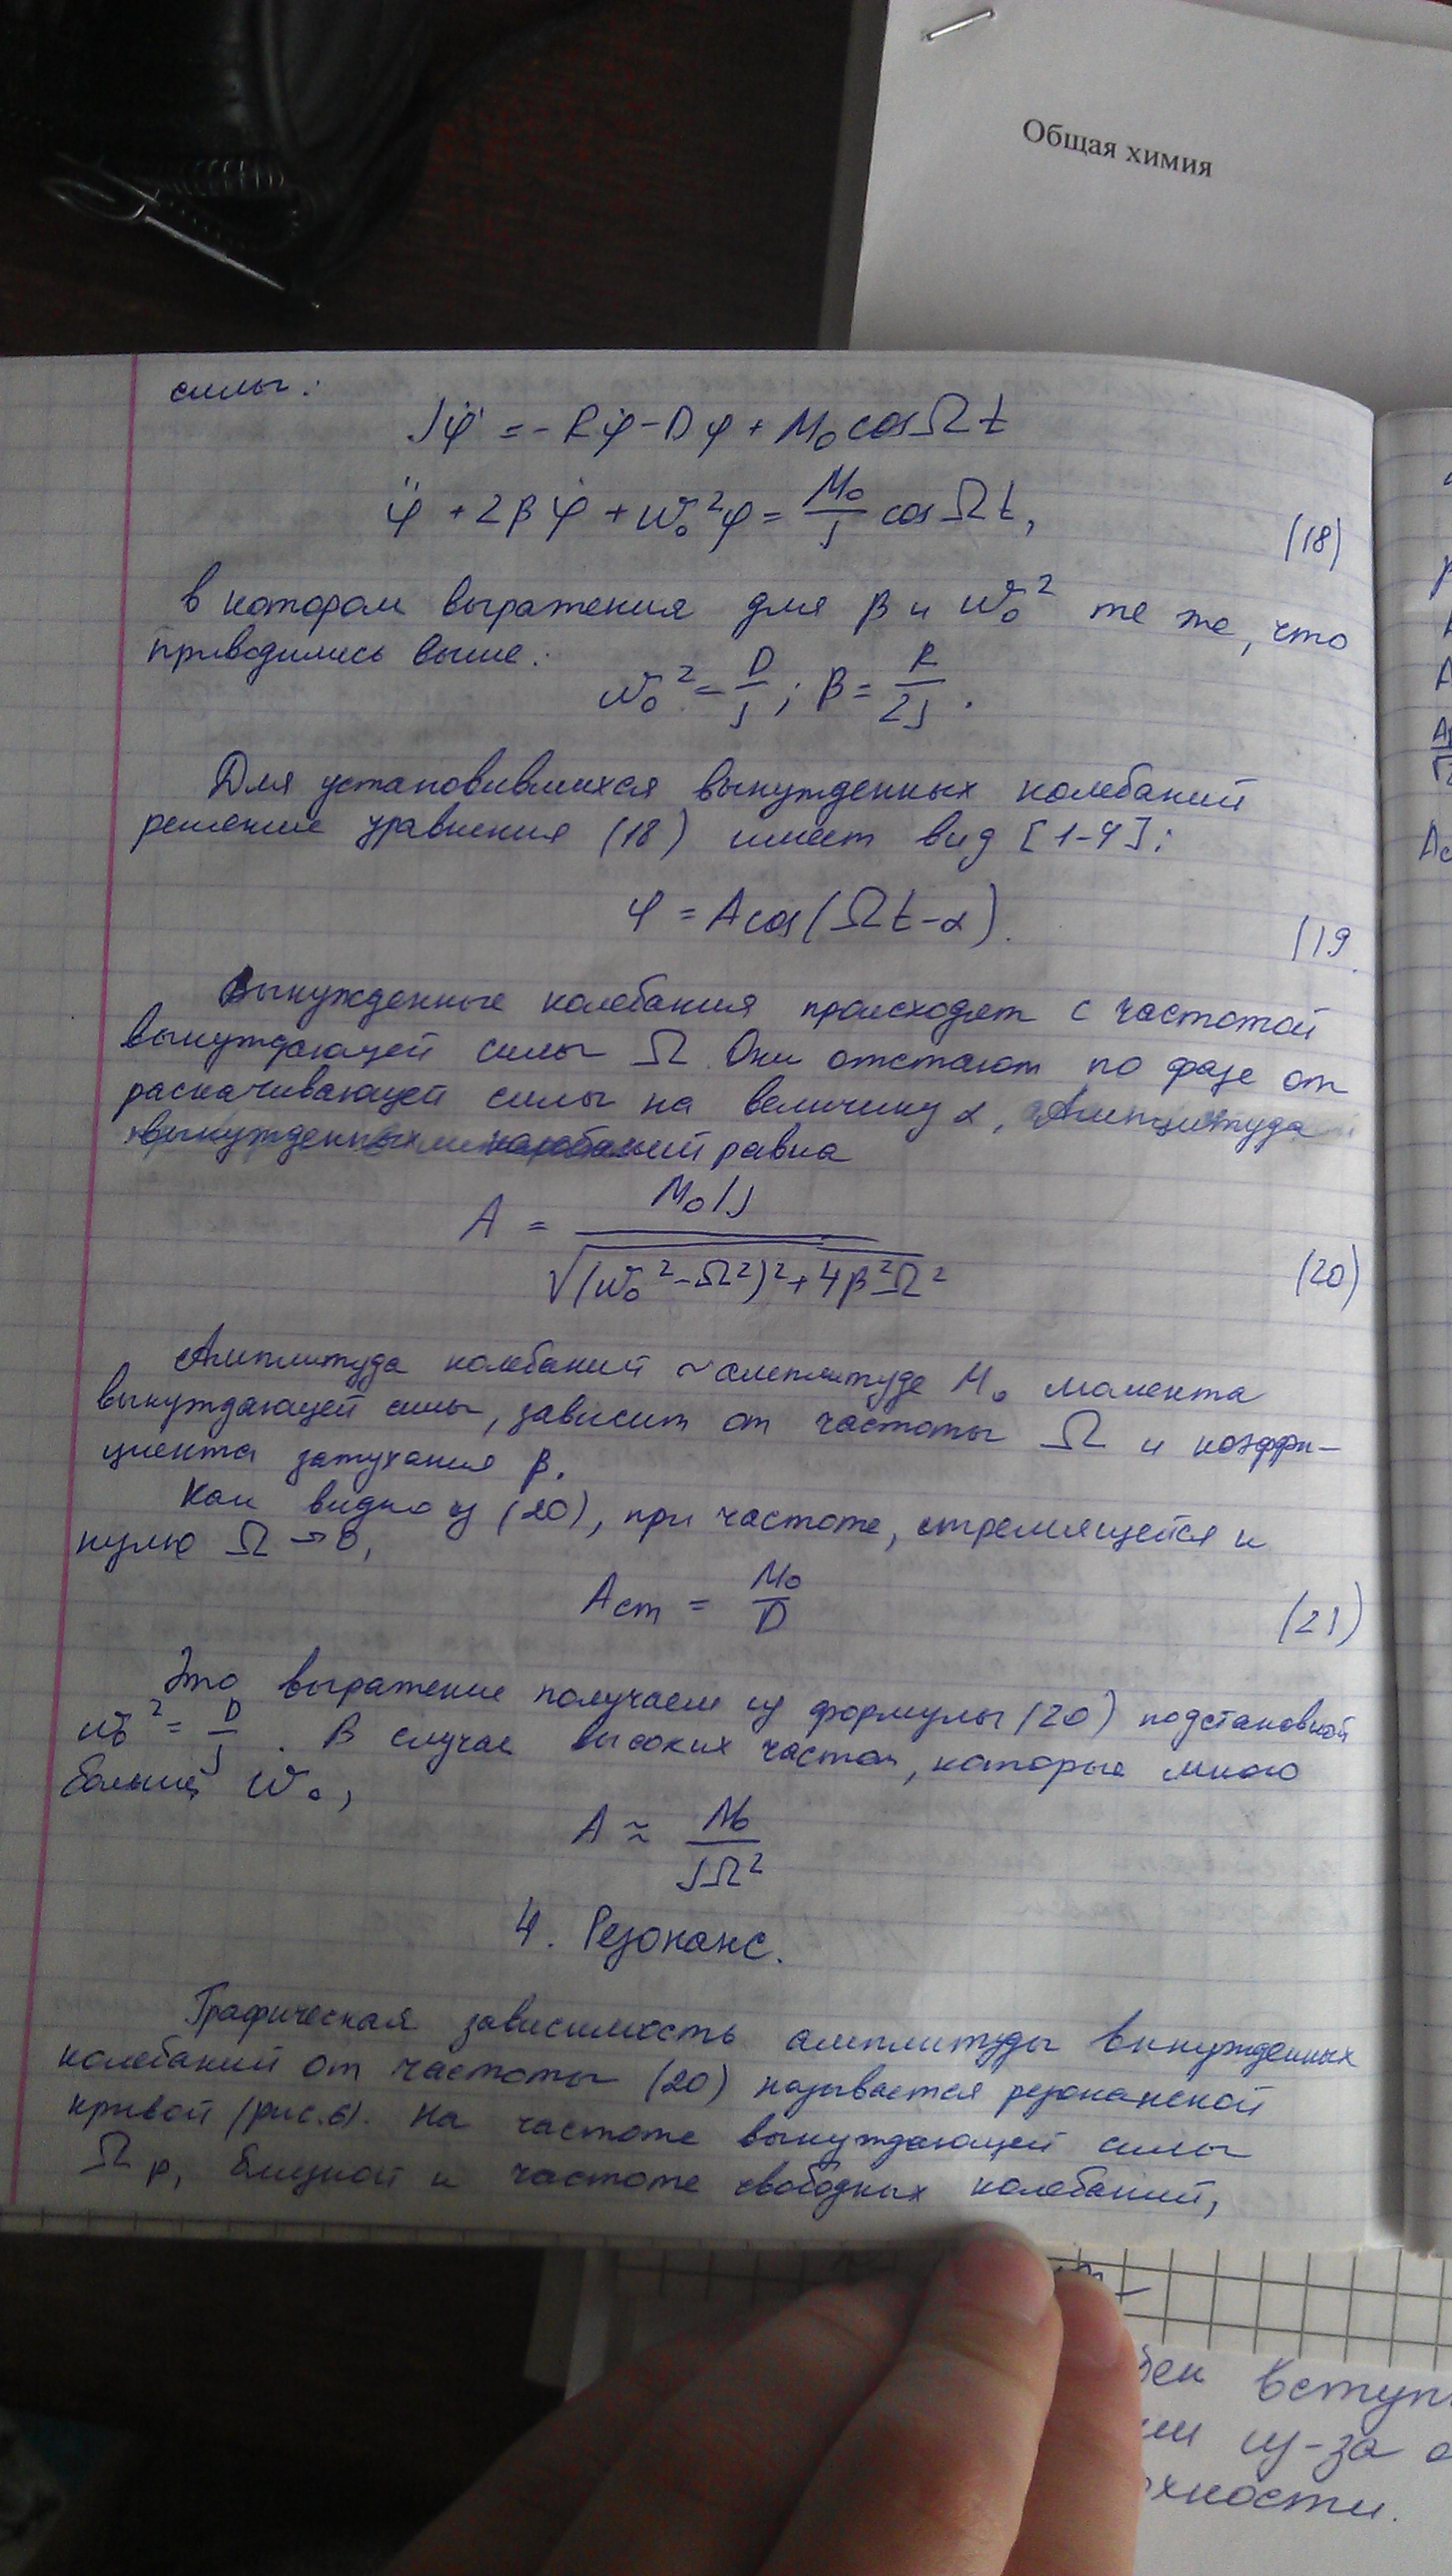 Общая химия
силы:
Jφ̈ = - Rφ̇ - Dφ + M₀ cos Ωt
φ̈ + 2βφ̇ + ω₀²φ = M₀/J cos Ωt, (18)
в котором выражения для β и ω₀² те же, что
приводились выше:
ω₀² = D/J ; β = R/2J .
Для установившихся вынужденных колебаний
решение уравнения (18) имеет вид [1-4]:
φ = A cos(Ωt - α). (19
Вынужденные колебания происходят с частотой
вынуждающей силы Ω. Они отстают по фазе от
раскачивающей силы на величину α, Амплитуда
вынужденных колебаний равна
A = M₀/J / √((ω₀² - Ω²)² + 4β²Ω²) (20)
Амплитуда колебаний ~ амплитуде M₀ момента
вынуждающей силы, зависит от частоты Ω и коэффи-
циента затухания β.
Как видно из (20), при частоте, стремящейся к
нулю Ω → 0,
Aст = M₀/D (21)
Это выражение получаем из формулы (20) подстановкой
ω₀² = D/J . В случае высоких частот, которые много
больше ω₀,
A ≈ M₀/JΩ²
4. Резонанс.
Графическая зависимость амплитуды вынужденных
колебаний от частоты (20) называется резонанской
кривой (рис.6). На частоте вынуждающей силы
Ωр, близкой к частоте свободных колебаний,
вступ
из-за